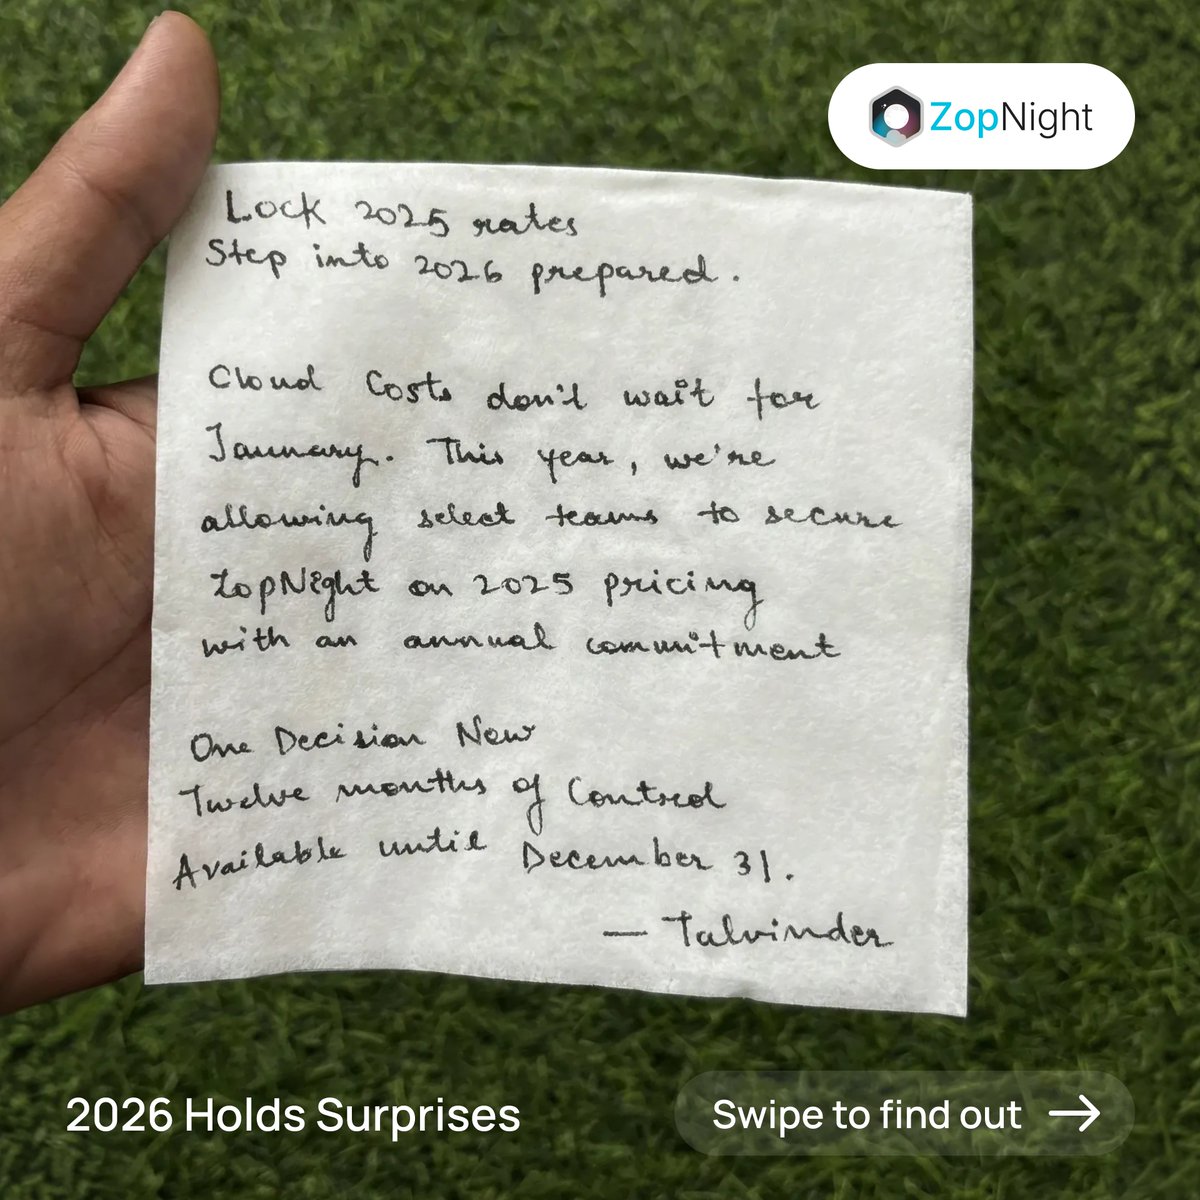 ZopNight
Lock 2025 rates
Step into 2026 prepared.
Cloud Costs don't wait for
January. This year, we're
allowing select teams to secure
ZopNight on 2025 pricing
with an annual commitment
One Decision Now
Twelve months of Control
Available until December 31.
— Talvinder
2026 Holds Surprises
Swipe to find out →